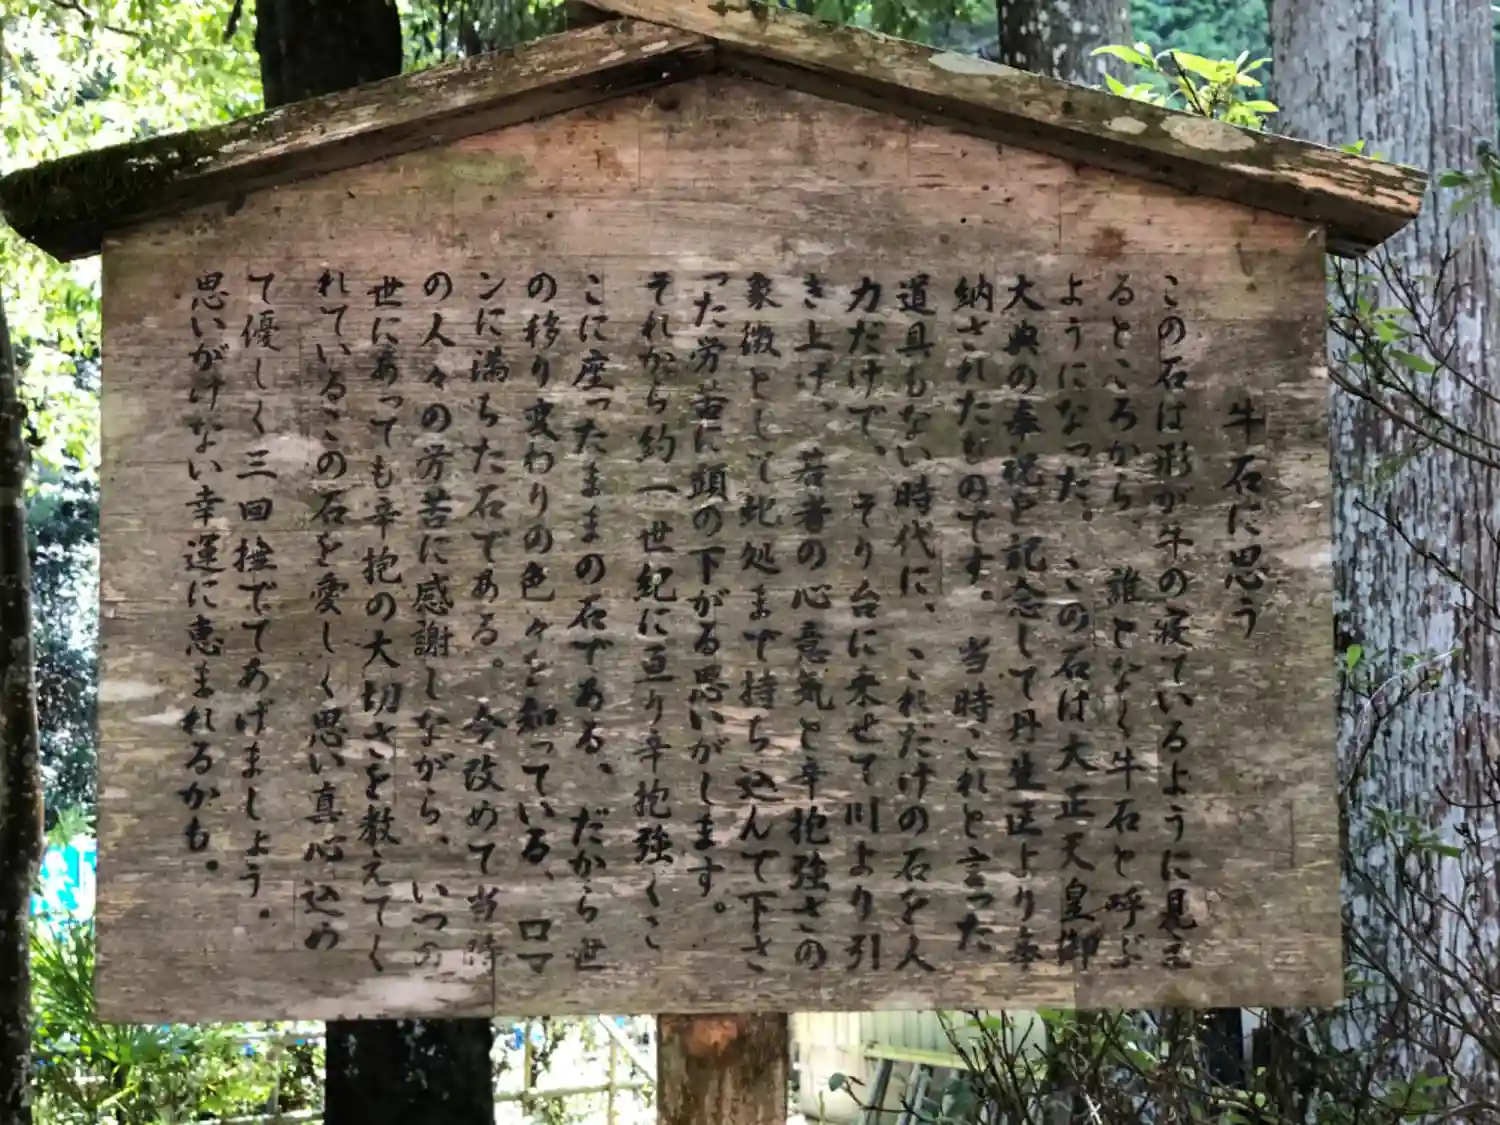 牛石に思う
この石は形が牛の寝ているように見え
るところから、誰となく牛石と呼ぶ
ようになった。この石は大正天皇御
大典の奉祝を記念して丹生区より奉
納されたものです。当時これと言った
道具もない時代に、これだけの石を人
力だけで、そり台に乗せて川より引
き上げ、若者の心意気と辛抱強さの
象徴として此処まで持ち込んで下さ
った労苦に頭の下がる思いがします。
それから約一世紀に亘り辛抱強くこ
こに座ったままの石である、だから世
の移り変わりの色々を知っている、ロマ
ンに満ちた石である。今改めて当時
の人々の労苦に感謝しながら、いつの
世にあっても辛抱の大切さを教えてく
れているこの石を愛しく思い真心込め
て優しく三回撫でてあげましょう。
思いがけない幸運に恵まれるかも。